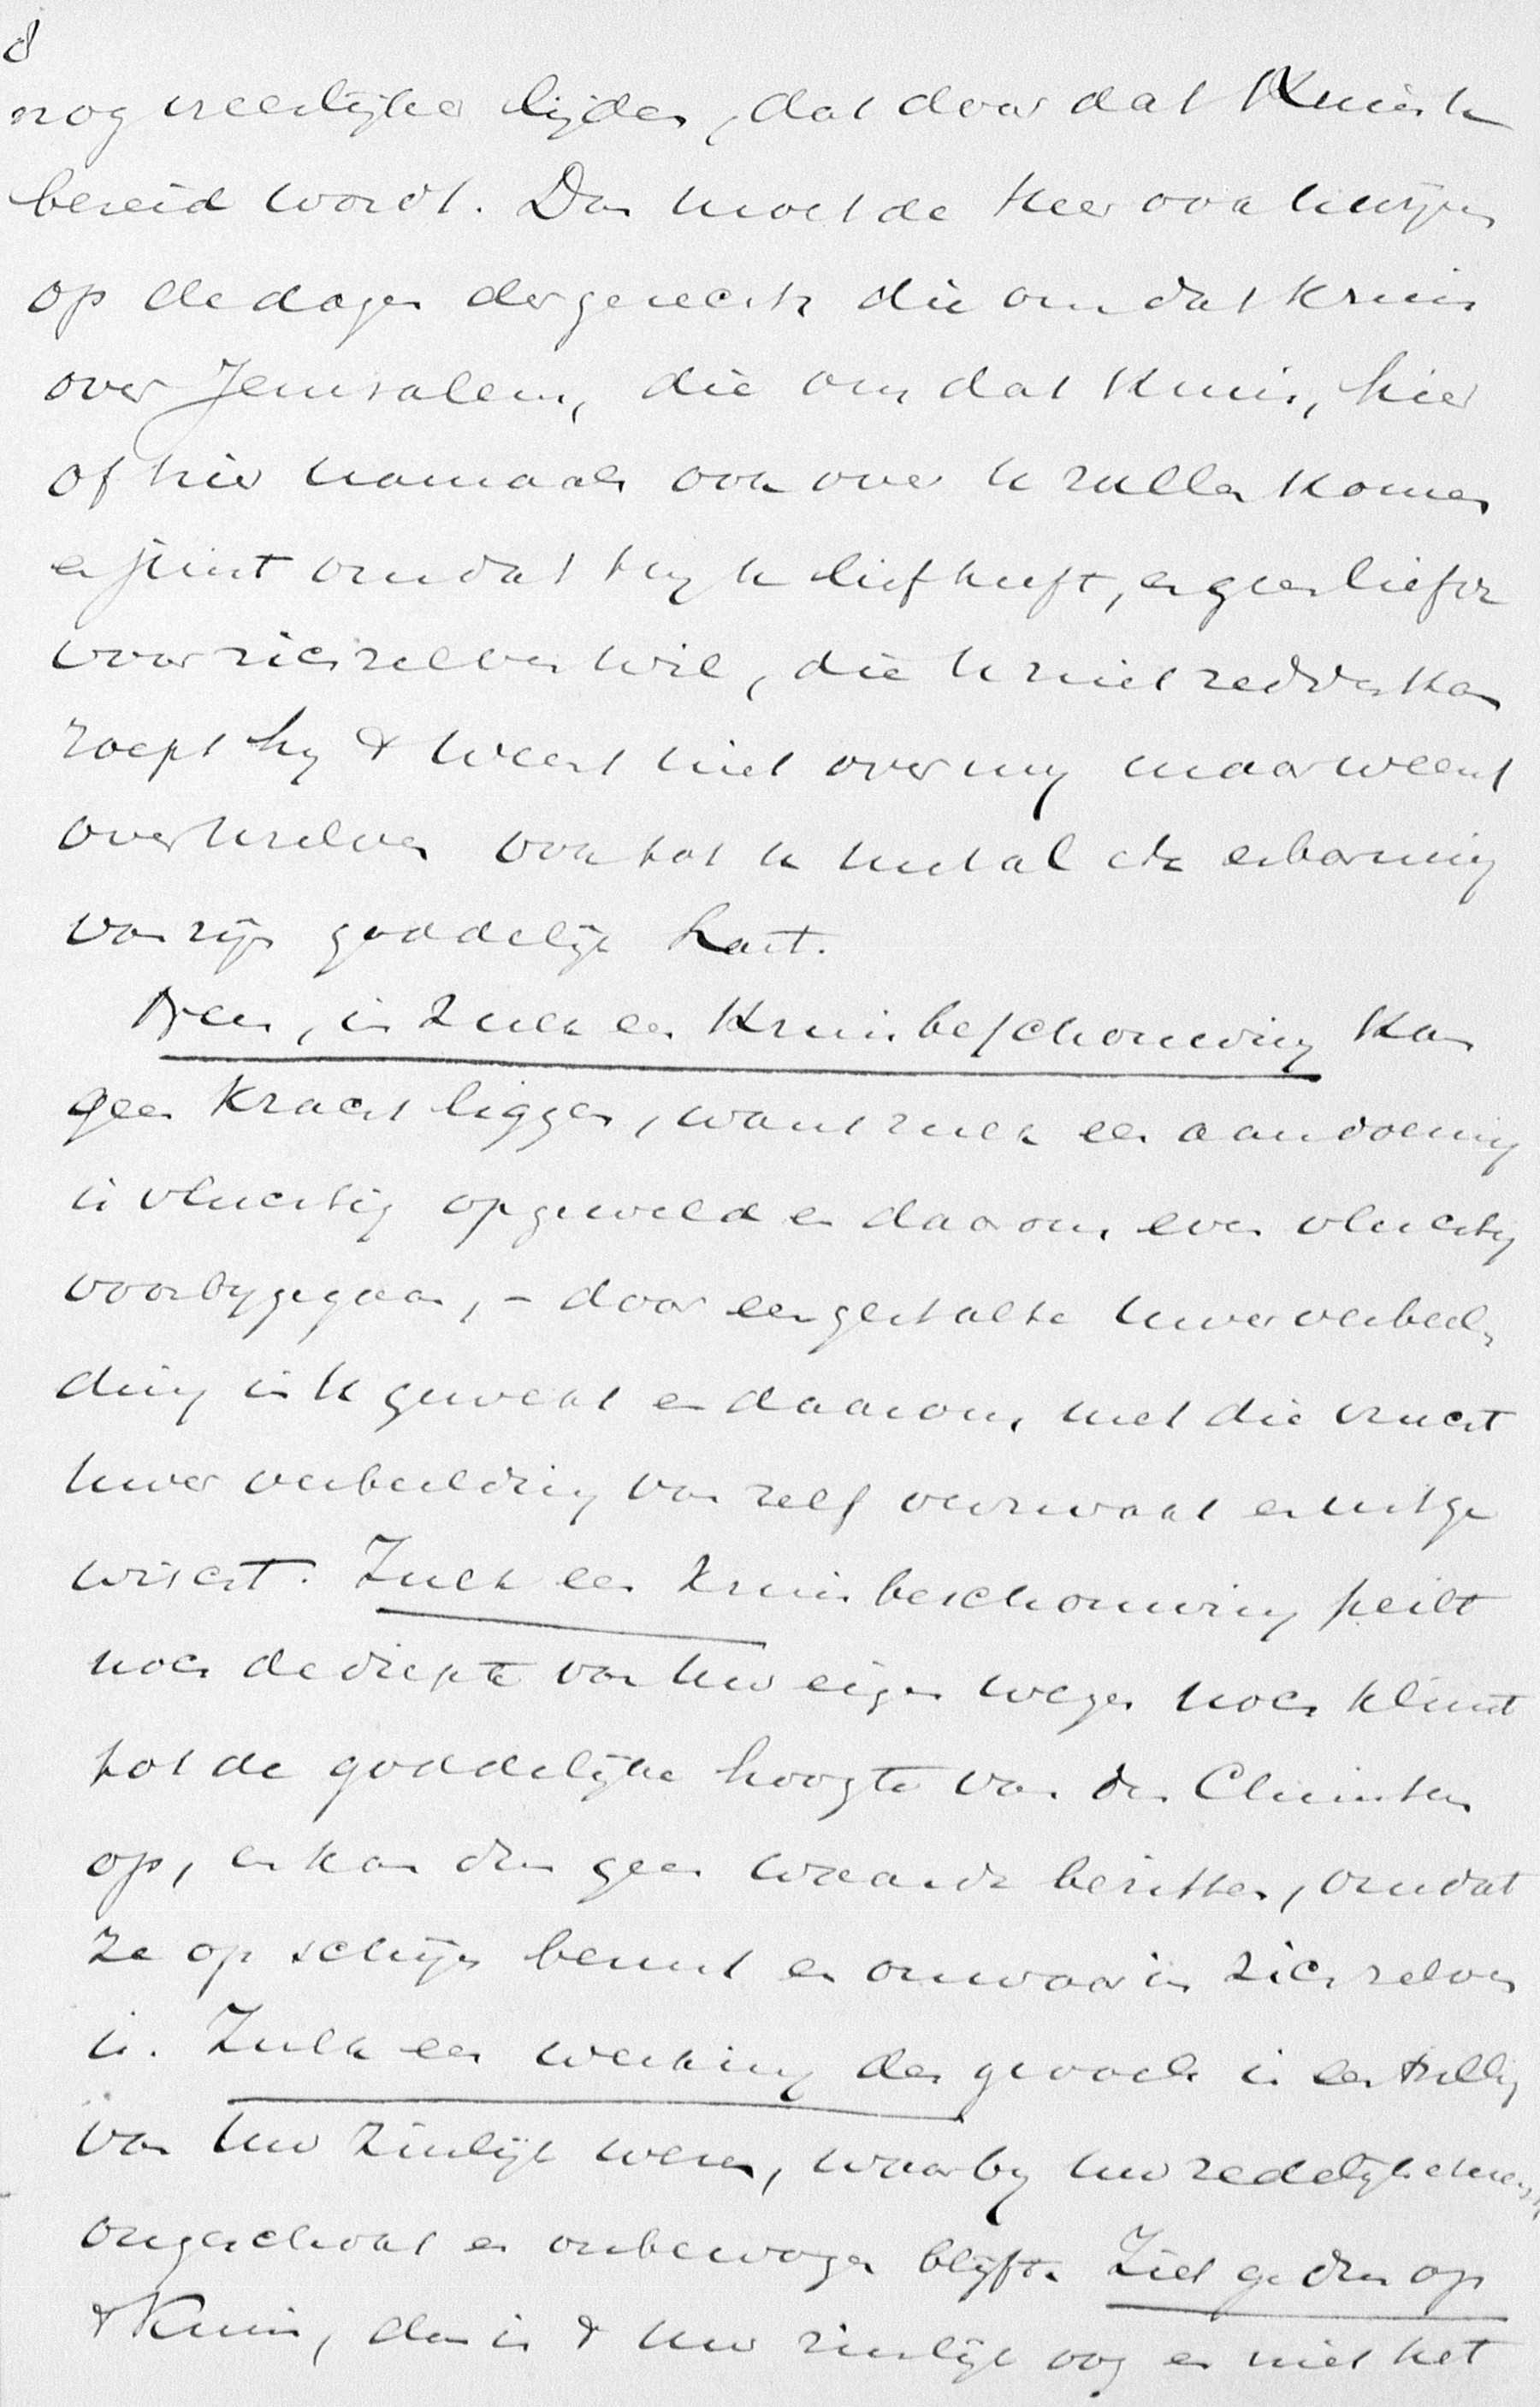 8
nog vreeslijker lijden, dat door dat Kruis U
bereid wordt. Dan moet de Heer ook U wijzen
op de dagen der gerechte die om dat Kruis
over Jerusalem, die om dat Kruis, hier
of hier namaals ook over U zullen komen
en juist omdat hij U lief heeft, en geen liefde
voor zich zelven wil, die U niet redden kan
roept hij & weent niet over mij maar weent
over U zelven ook tot U met al de erbarming
van zijn goddelijk hart.
Neen, in zulk een Kruisbeschouwing kan
geen kracht liggen, want zulk een aandoening
is vluchtig opgeweld en daarom even vluchtig
voorbijgegaan, – door een gestalte uwer verbeel-
ding in U gewekt en daarom, met die vrucht
uwer verbeelding van zelf weer en uitge
wischt. Zulk een Kruisbeschouwing peilt
noch de diepte van uw eigen wezen noch klimt
tot de goddelijke hoogte van den Christus
op, en kan dus geen waarde bezitten, omdat
ze op schijn berust en onwaar in zich zelven
is. Zulk een werking des gevoels is een trilling
van uw zinlijk wezen, waarbij uw redelijk
ongeschokt en onbewogen blijft. Ziet ge dus op
& Kruis, dan is & uw zinlijk oog en niet het